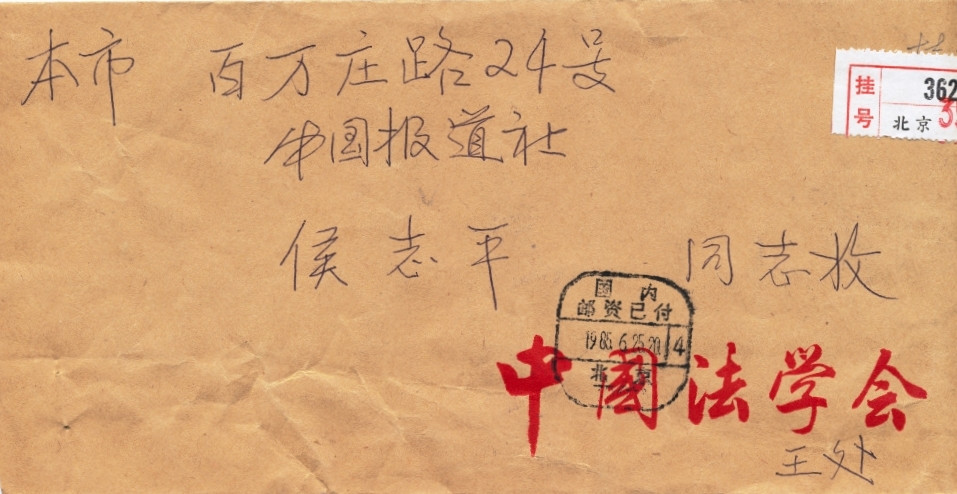 本市 百万庄路24号
中国报道社
侯志平 同志收
挂号
362
北京
国内
邮资已付
6.25.20
4
北京
中國法学会
王处